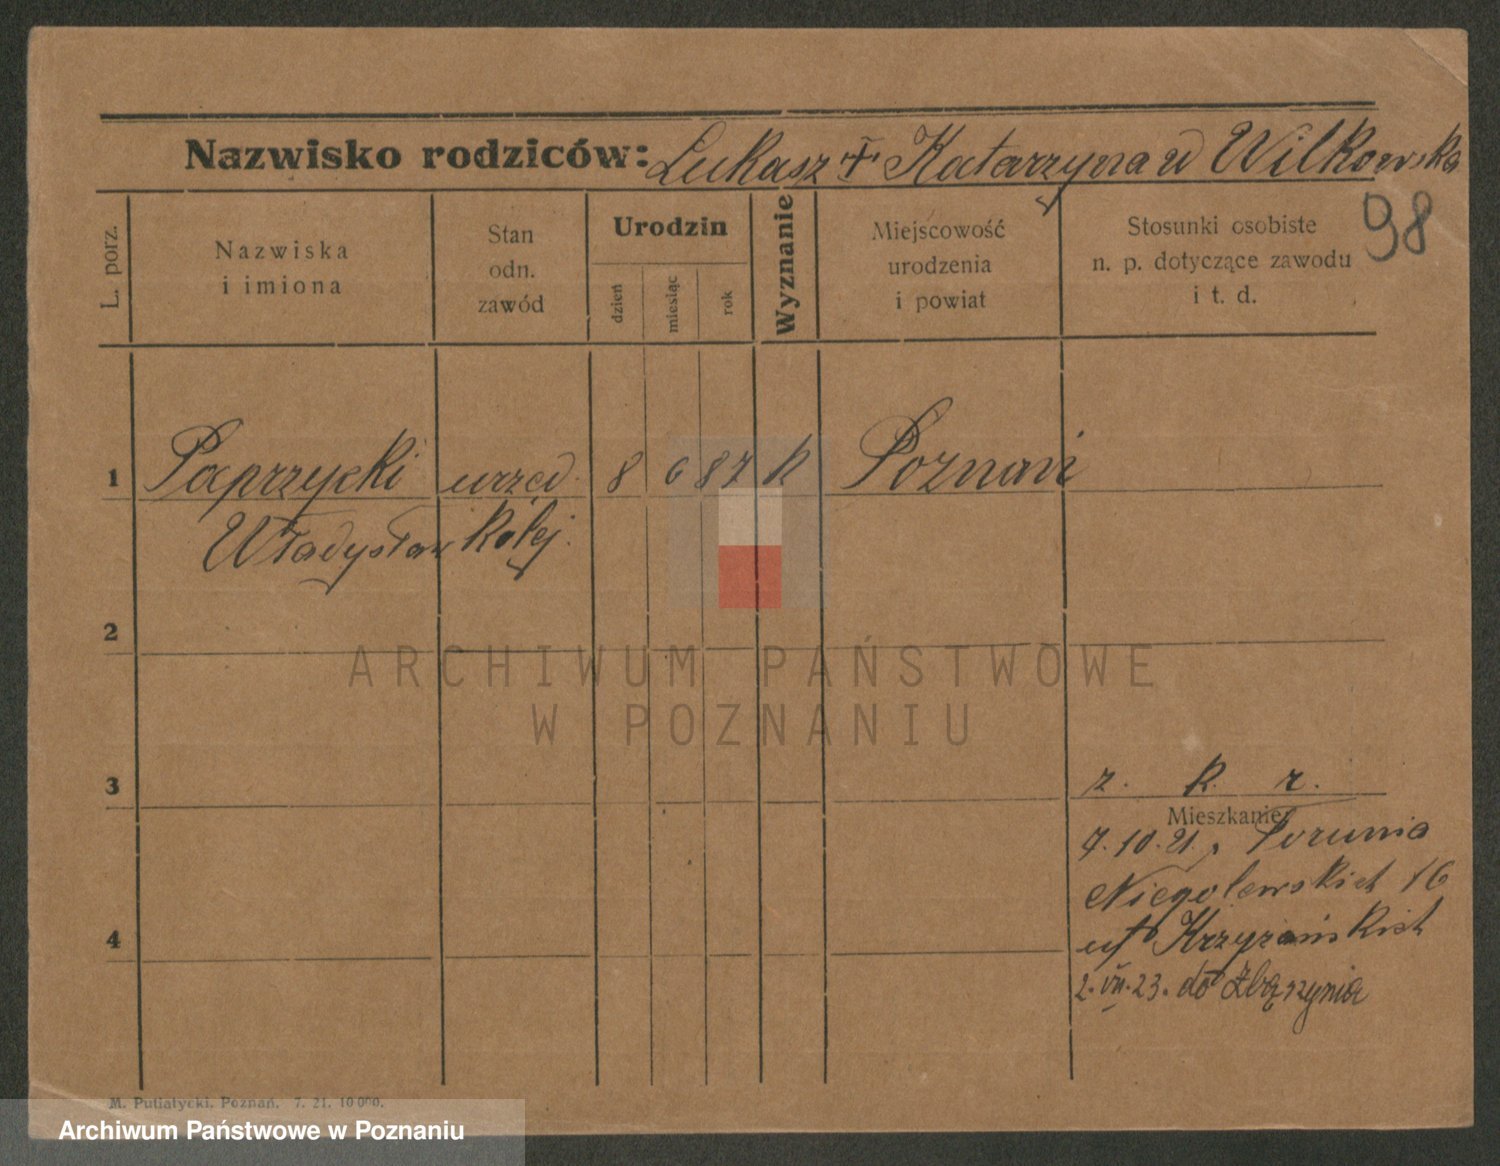 Nazwisko rodziców: Łukasz + Katarzyna u Wilkowska
98
L. porz.
Nazwiska
i imiona
Stan
odn.
zawód
Urodzin
dzień
miesiąc
rok
Wyznanie
Miejscowość
urodzenia
i powiat
Stosunki osobiste
n. p. dotyczące zawodu
i t. d.
1 Paprzycki urzęd. 8 6 87 k Poznań
Władysław kolej.
2
3
z. k. r.
Mieszkanie:
7.10.21. z Torunia
Niegolewskich 16
4
u Krzyżańskich
2. VII. 23. do Zbąszynia
M. Putiatycki. Poznań. 7. 21. 10 000.
ARCHIWUM PAŃSTWOWE
W POZNANIU
Archiwum Państwowe w Poznaniu